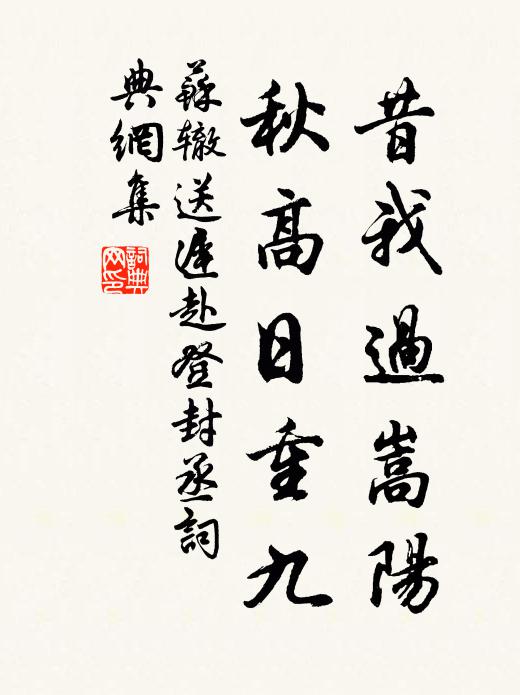 昔我過嵩陽
秋高日重九
蘇轍送遲赴登封丞詞
典網集
詞典
网印